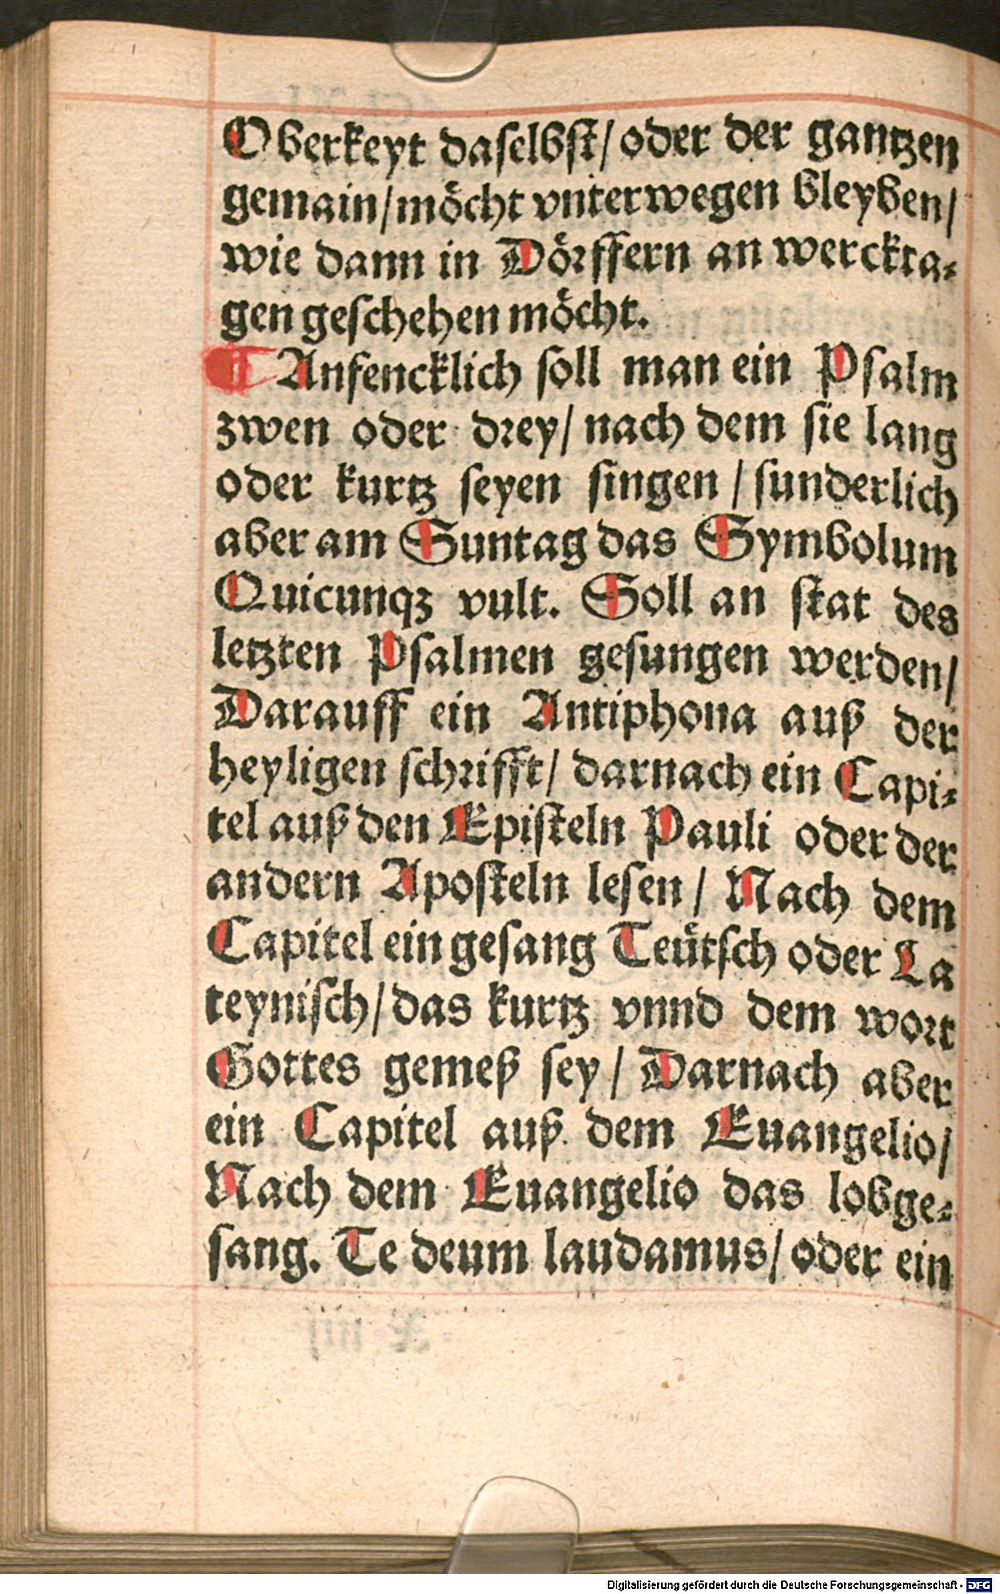 Oberkeyt daselbst/ oder der gantzen
gemain/ möcht vnterwegen bleyben/
wie dann in Dörffern an werckta-
gen geschehen möcht.
¶ Anfencklich soll man ein Psalm
zwen oder drey/ nach dem sie lang
oder kurtz seyen singen / sunderlich
aber am Suntag das Symbolum
Quicunqʒ vult. Soll an stat des
letzten Psalmen gesungen werden/
Darauff ein Antiphona auß der
heyligen schrifft/ darnach ein Capi-
tel auß den Episteln Pauli oder der
andern Aposteln lesen / Nach dem
Capitel ein gesang Teütsch oder La
teynisch/ das kurtz vnnd dem wort
Gottes gemeß sey / Darnach aber
ein Capitel auß dem Euangelio/
Nach dem Euangelio das lobge-
sang. Te deum laudamus/ oder ein
Digitalisierung gefördert durch die Deutsche Forschungsgemeinschaft - DFG